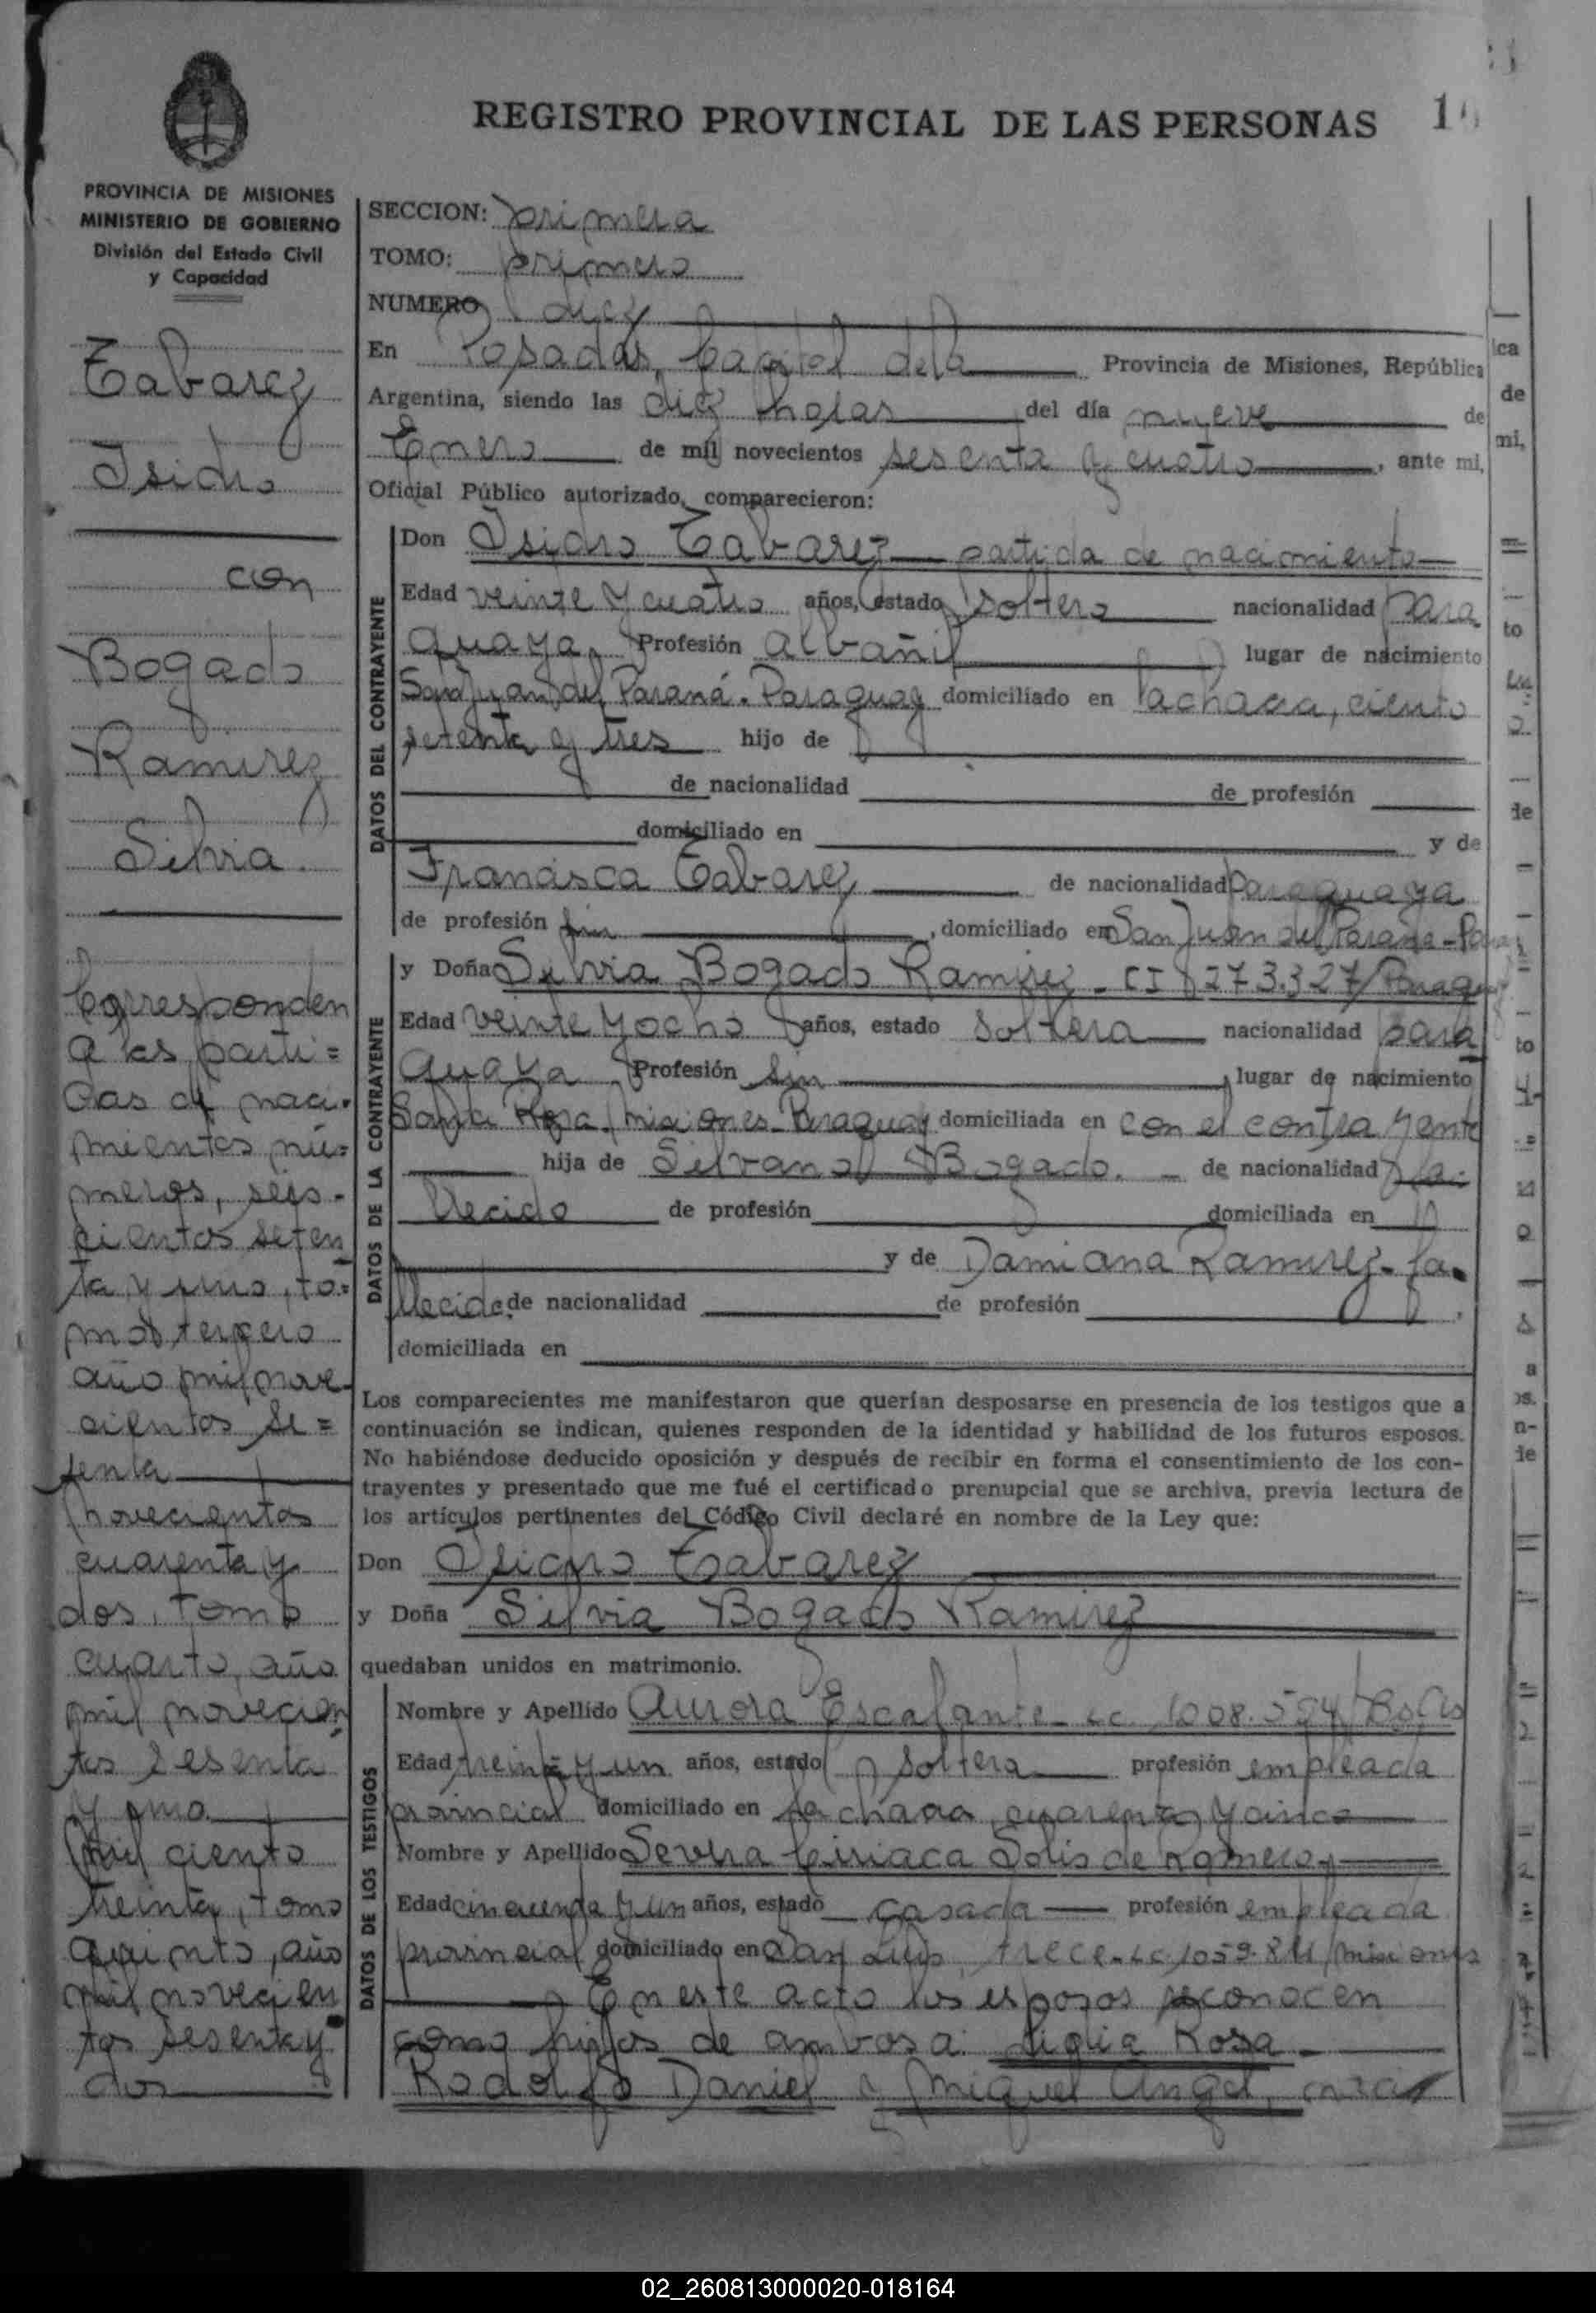 REGISTRO PROVINCIAL DE LAS PERSONAS
PROVINCIA DE MISIONES
MINISTERIO DE GOBIERNO
División del Estado Civil
y Capacidad
Tabarez
Isidro
con
Bogado
Ramirez
Silvia
Corresponden
a las parti=
das de naci-
mientos nú=
meros, seis-
cientos seten
ta y uno, to=
mo tercero
año mil nove-
cientos se=
senta
novecientos
cuarenta y
dos, tomo
cuarto, año
mil novecien
tos sesenta
y uno
Mil ciento
treinta, tomo
quinto, año
mil novecien
tos sesenta y
dos
SECCION: primera
TOMO: primero
NUMERO diez
En Posadas, Capital de la Provincia de Misiones, República
Argentina, siendo las diez horas del día nueve de
Enero de mil novecientos sesenta y cuatro, ante mi,
Oficial Público autorizado, comparecieron:
DATOS DEL CONTRAYENTE
Don Isidro Tabarez partida de nacimiento
Edad veinte y cuatro años, estado soltero nacionalidad para
guaya Profesión albañil lugar de nacimiento
San Juan del Paraná. Paraguay domiciliado en la chacra, ciento
setenta y tres hijo de
de nacionalidad de profesión
domiciliado en y de
Francisca Tabarez de nacionalidad Paraguaya
de profesión sin, domiciliado en San Juan del Paraná - Para
DATOS DE LA CONTRAYENTE
y Doña Silvia Bogado Ramirez - CI 273.327/Parag
Edad veinte y ocho años, estado soltera nacionalidad para
guaya Profesión sin, lugar de nacimiento
Santa Rosa. Misiones - Paraguay domiciliada en con el contrayente
hija de Silvano Bogado. - de nacionalidad fa-
llecido de profesión domiciliada en
y de Damiana Ramirez - fa-
llecida. de nacionalidad de profesión
domiciliada en
Los comparecientes me manifestaron que querían desposarse en presencia de los testigos que a
continuación se indican, quienes responden de la identidad y habilidad de los futuros esposos.
No habiéndose deducido oposición y después de recibir en forma el consentimiento de los con-
trayentes y presentado que me fué el certificado prenupcial que se archiva, previa lectura de
los artículos pertinentes del Código Civil declaré en nombre de la Ley que:
Don Isidro Tabarez
y Doña Silvia Bogado Ramirez
quedaban unidos en matrimonio.
DATOS DE LOS TESTIGOS
Nombre y Apellido Aurora Escalante
Edad treinta y un años, estado soltera profesión empleada
provincial domiciliado en la chacra cuarenta y cinco
Nombre y Apellido Severa Ciriaca Solis de Romero
Edad cincuenta y un años, estado casada profesión empleada
provincial domiciliado en San Luis, trece
En este acto los esposos reconocen
como hijos de ambos a: Ligia Rosa
Rodolfo Daniel y Miguel Angel,
02_260813000020-018164